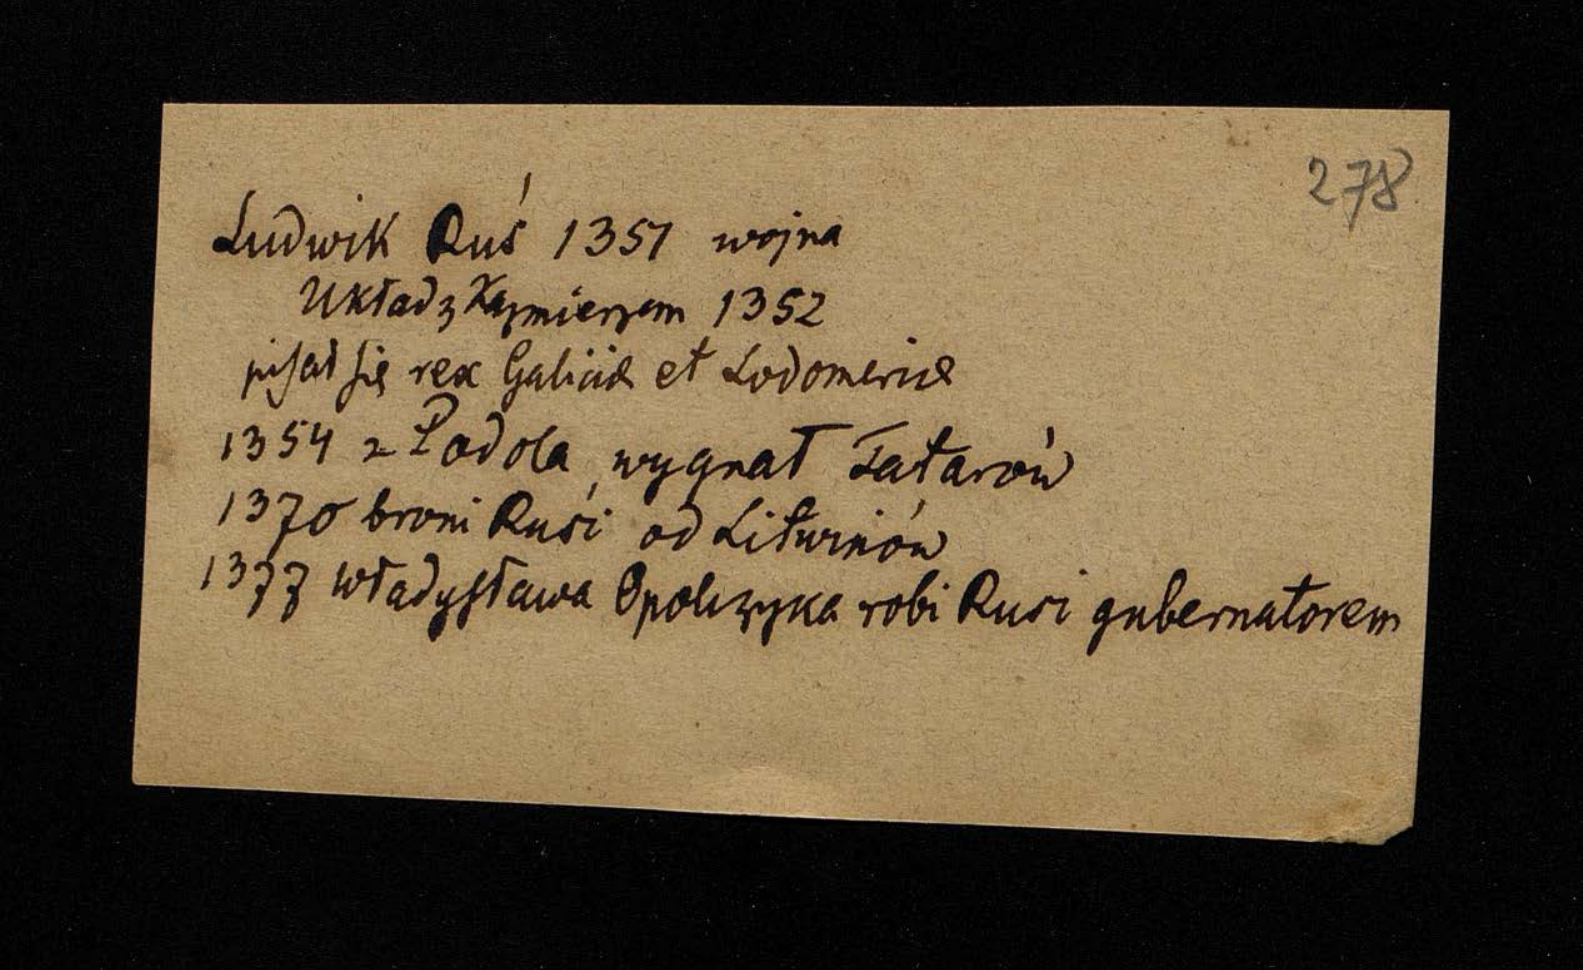 278
Ludwik Ruś 1351 wojna
Układ z Kazmierzem 1352
pisał się rex Galiciae et Lodomeriae
1354 z Podola wygnał Tatarów
1370 broni Rusi od Litwinów
1377 Władysława Opolczyka robi Rusi gubernatorem